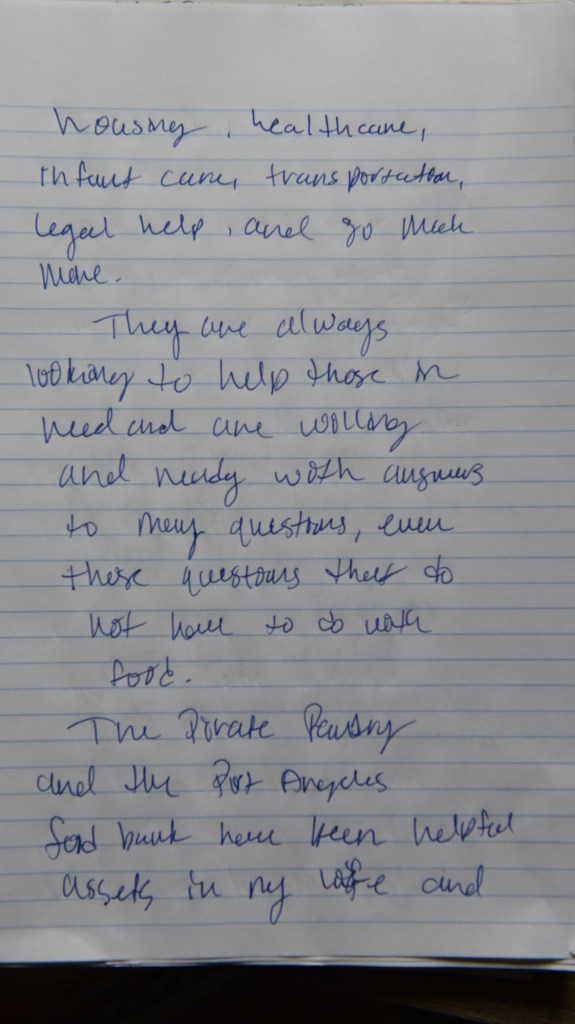 housing, healthcare,
infant care, transportation,
legal help, and so much
more.
They are always
looking to help those in
need and are willing
and ready with answers
to many questions, even
those questions that do
not have to do with
food.
The Pirate Pantry
and the Port Angeles
food bank have been helpful
assets in my life and